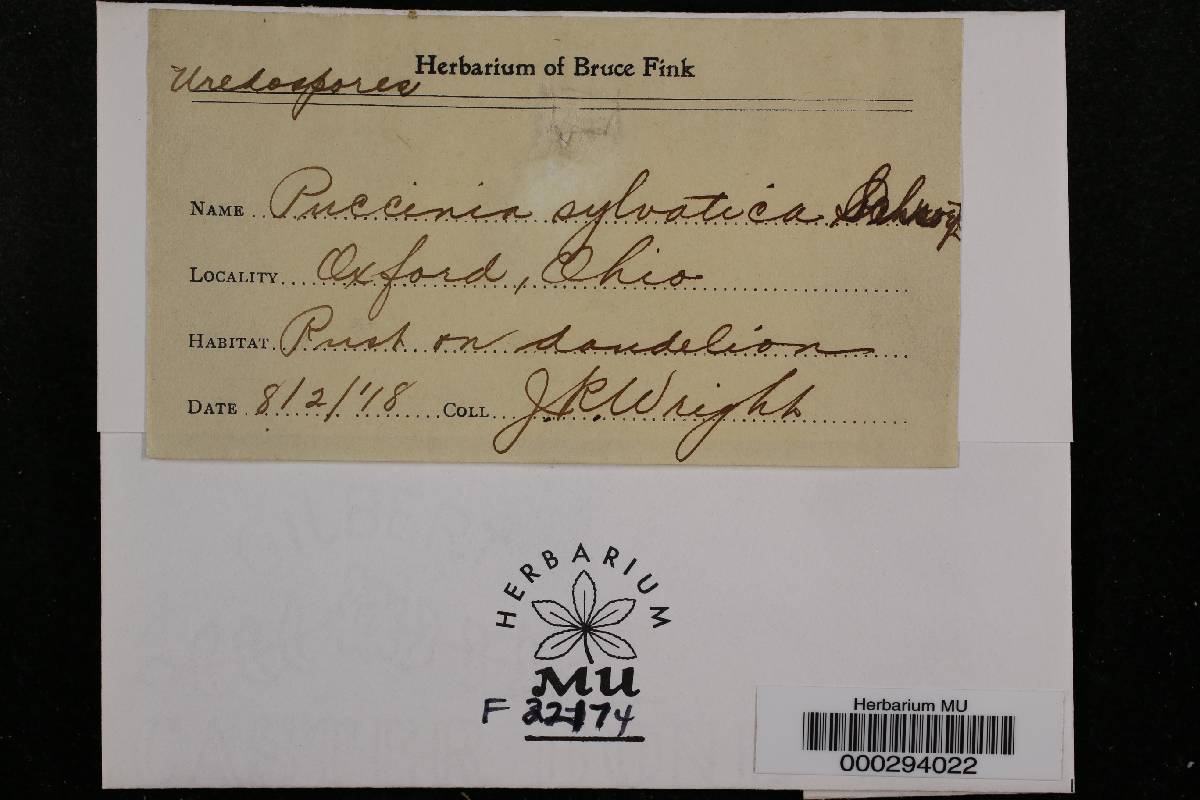 Herbarium of Bruce Fink
Uredospores
NAME Puccinia sylvatica
LOCALITY Oxford, Ohio
HABITAT Rust on dandelion
DATE 8/2/'18 COLL J.R. Wright
HERBARIUM
MU
F 22174
Herbarium MU
000294022